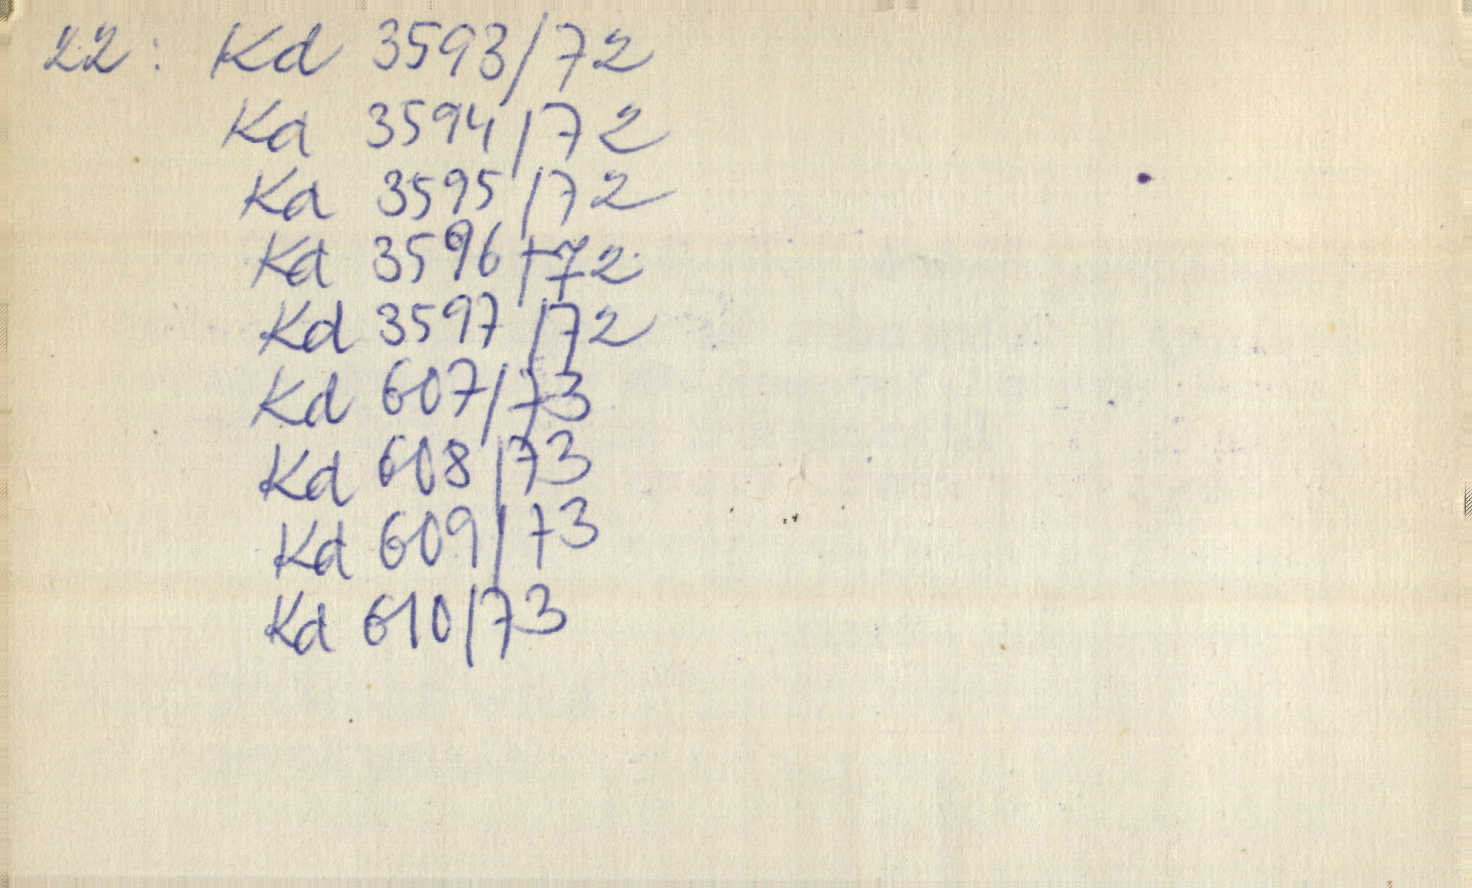 22: Kd 3593/72
Kd 3594/72
Kd 3595/72
Kd 3596/72
Kd 3597/72
Kd 607/73
Kd 608/73
Kd 609/73
Kd 610/73